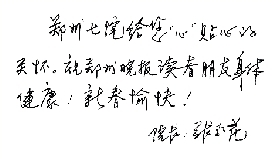 郑州七院给您“心”贴心的
关怀。祝郑州晚报读者朋友身体
健康！新春愉快！
院长：